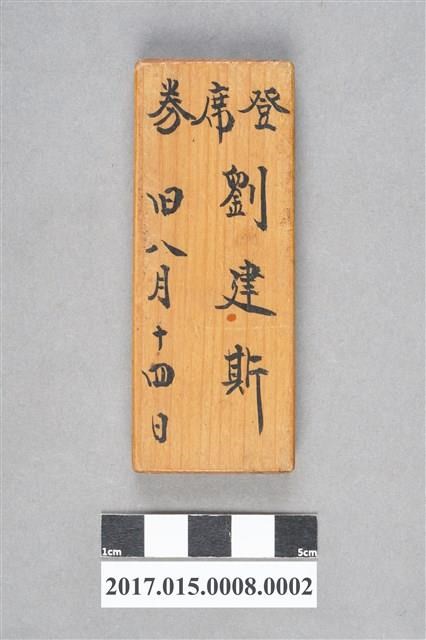 登席券
劉建斯
旧八月十四日
1cm 5cm
2017.015.0008.0002